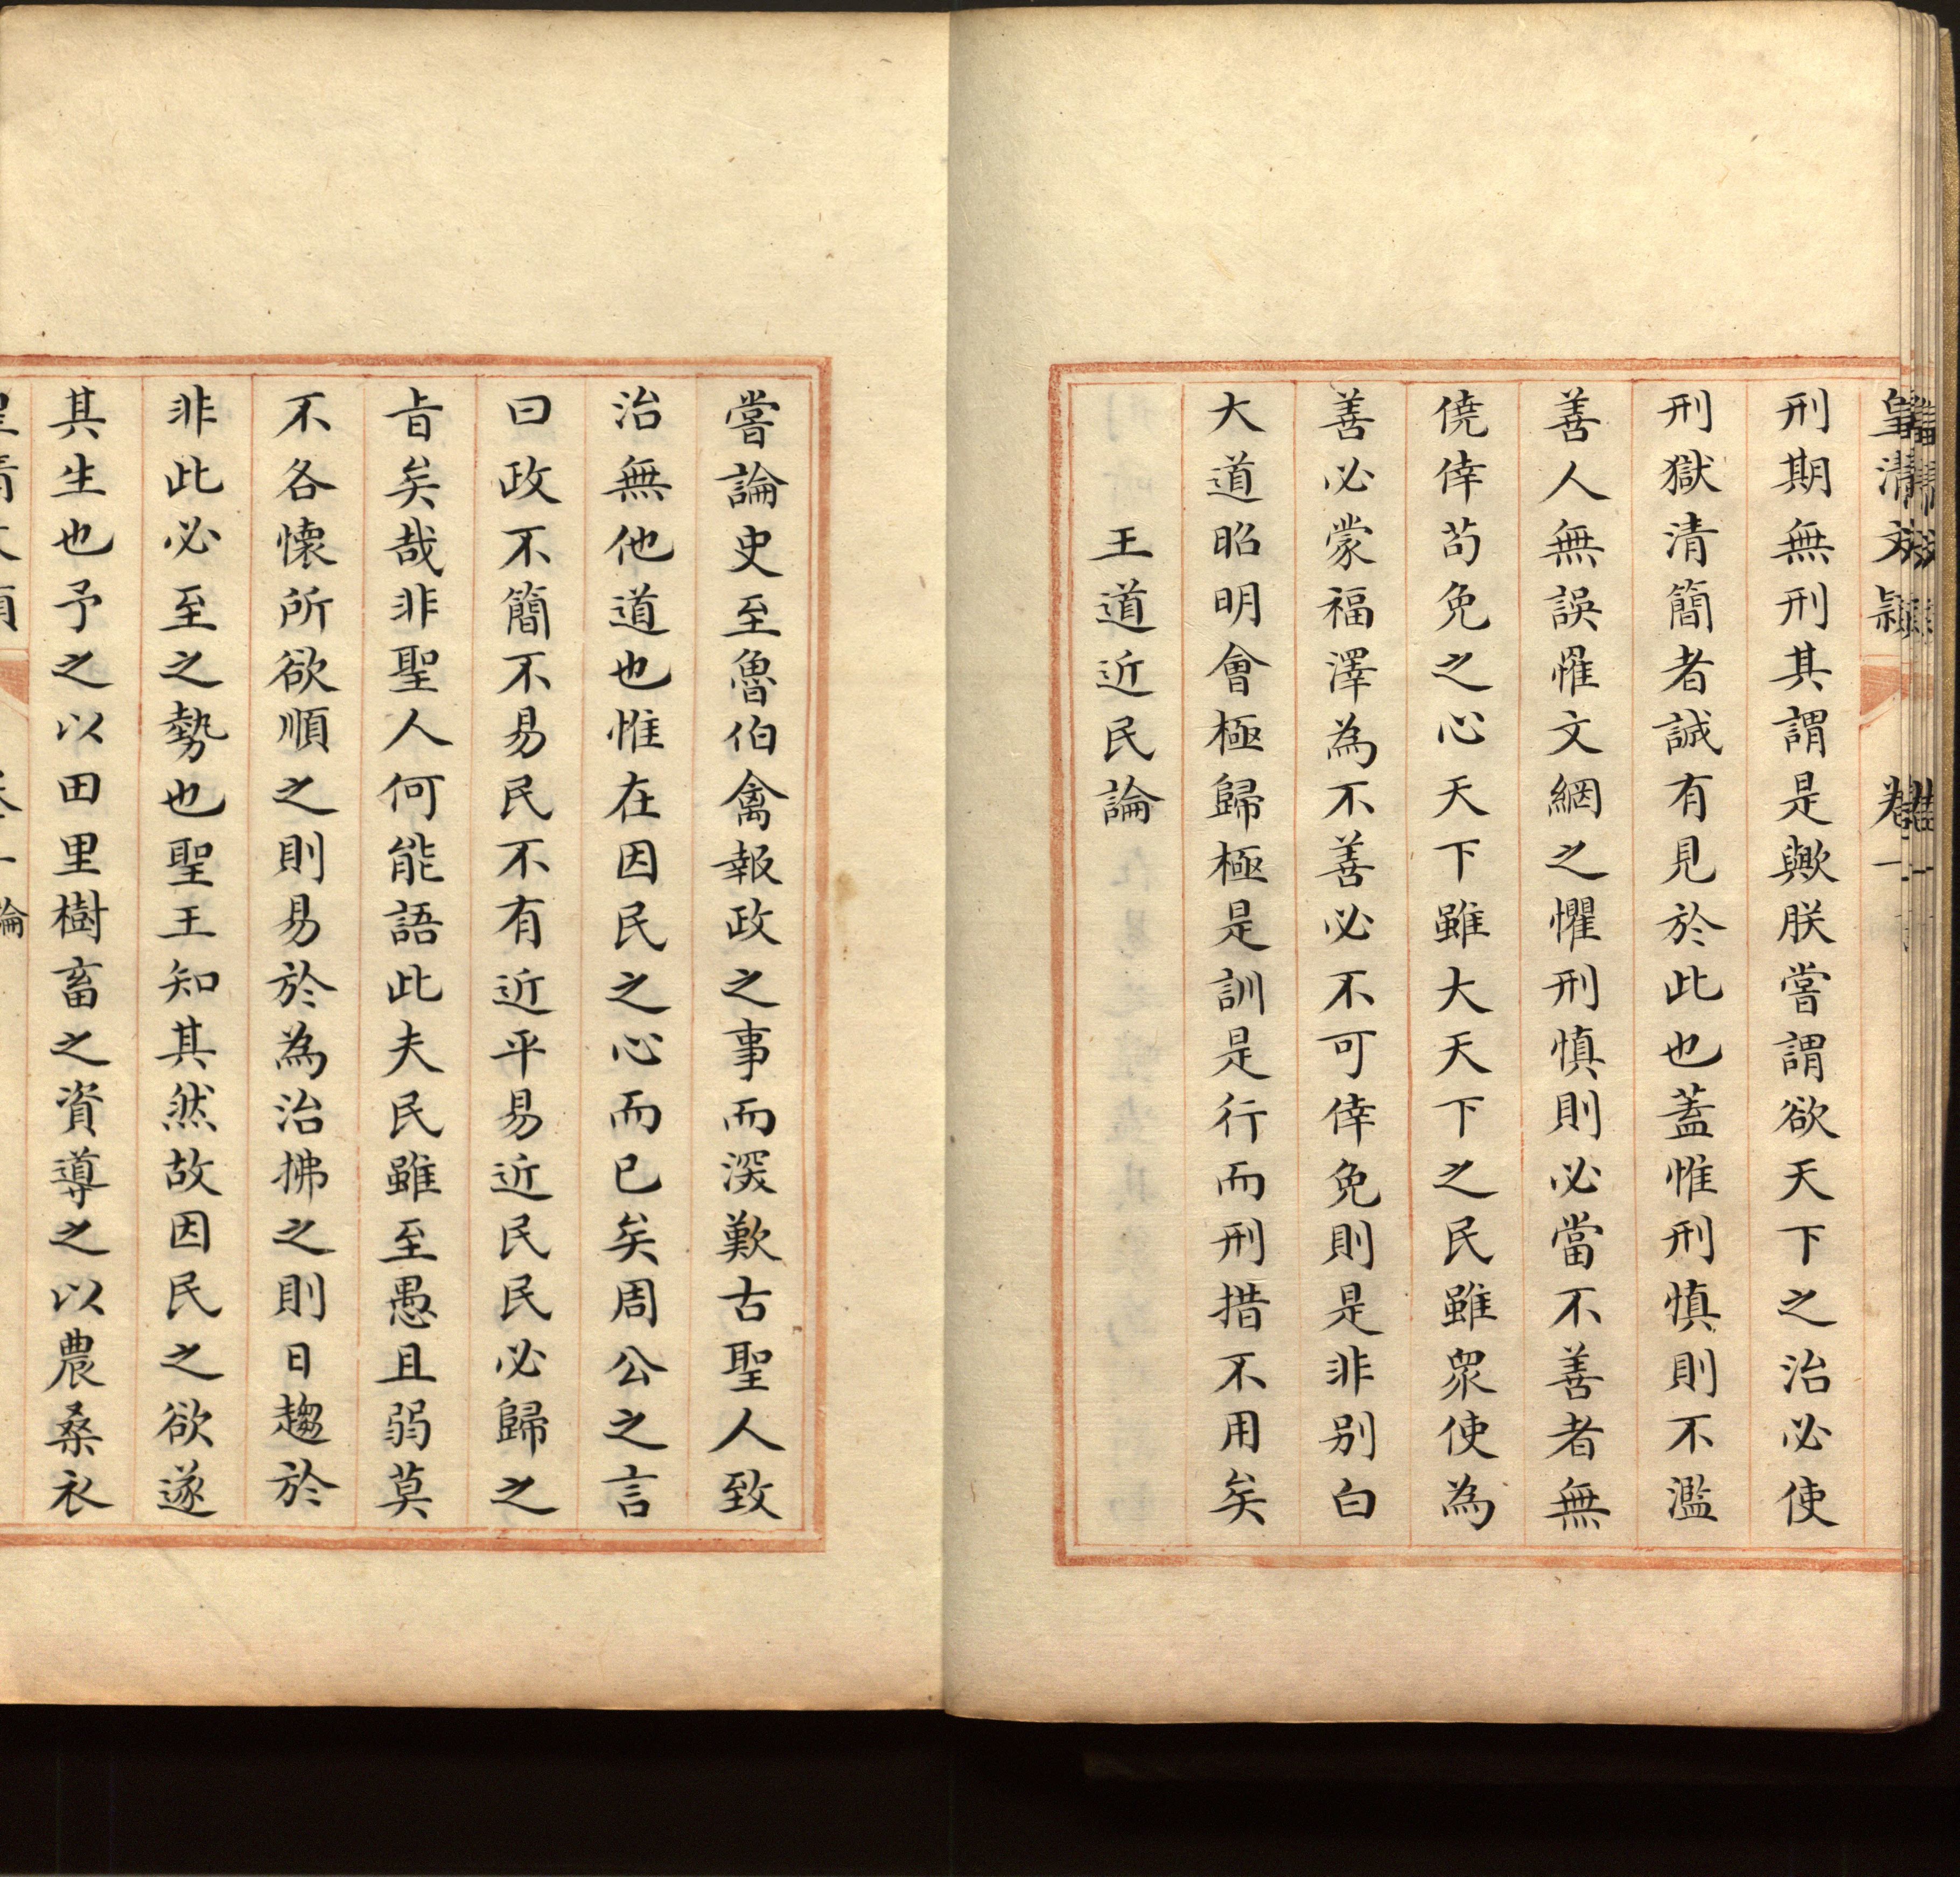 皇清文穎　卷一
刑期無刑其謂是歟朕嘗謂欲天下之治必使
刑獄清簡者誠有見於此也蓋惟刑慎則不濫
善人無誤罹文網之懼刑慎則必當不善者無
僥倖苟免之心天下雖大天下之民雖眾使為
善必蒙福澤為不善必不可倖免則是非別白
大道昭明會極歸極是訓是行而刑措不用矣
王道近民論
嘗論史至魯伯禽報政之事而深歎古聖人致
治無他道也惟在因民之心而已矣周公之言
曰政不簡不易民不有近平易近民民必歸之
旨矣哉非聖人何能語此夫民雖至愚且弱莫
不各懷所欲順之則易於為治拂之則日趨於
非此必至之勢也聖王知其然故因民之欲遂
其生也予之以田里樹畜之資導之以農桑衣